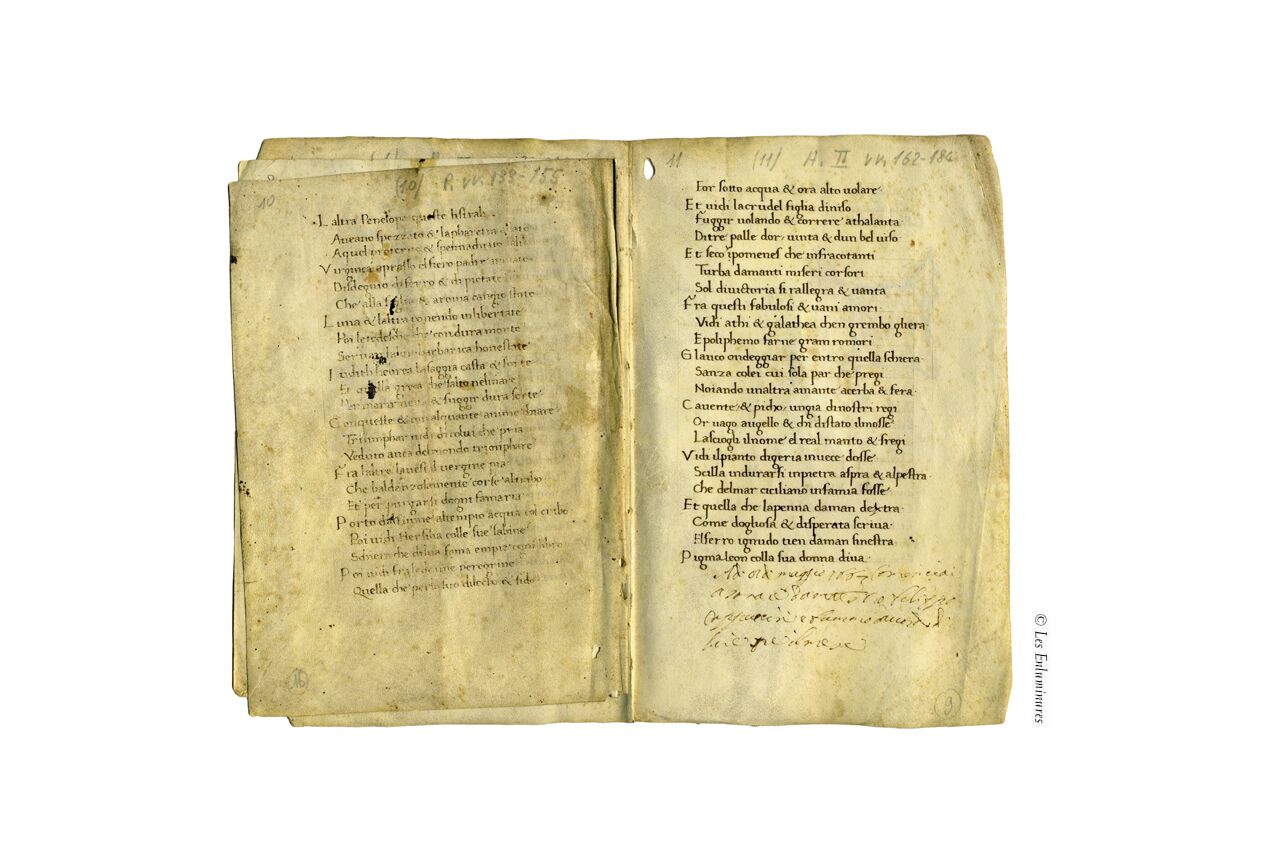 10 (10) P. vv. 133-155
L altra Penelope queste li strali
Aueano spezzato & la pharetra
A quel proteruo & spennachiate
V irginea apresso el fiero padre armato
Disdegnio di ferro & di pietate
Che alla figlia & aroma cangio stato
L una & laltra ponendo inlibertate
Poi le tedesche che con dura morte
Seruan la lor barbarica honestate
I udith hebrea la saggia casta & forte
Et quella greca che salto nel mare
Per morir netta & fuggir dura sorte
C on queste & con alquante anime chiare
Triumphar uidi di colui che pria
Veduto auea del mondo triomphare
F ra laltre la uestal uergine pia
Che baldanzosamente corse altibro
Et per purgarsi dogni fama ria
P orto dal fiume altempio acqua col cribo
Poi uidi Hersilia colle sue sabine
Schiera che del suo fama empie ogni libro
P oi uidi fra le donne peregrine
Quella che per lo suo dilecto & fido
(16)
11 (11) A. II vv. 162-184
For sotto acqua & ora alto uolare
E t uidi lacrudel figlia diniso
Fuggir uolando & correre athalanta
Ditre palle dor, uinta & dun bel uiso
E t seco ipomenes che infracotanti
Turba damanti miseri corsori
Sol diuictoria si rallegra & uanta
F ra questi fabulosi & uani amori
Vidi athi & galathea chen grembo gliera
E poliphemo farne gram romori
G lauco ondeggiar per entro quella schiera
Sanza colei cui sola par che pregi
Noiando unaltra amante acerba & fera
C auente & picho, ungia dinostri regi
Or uago augello & chi distato ilmosse
Lasciogli ilnome el real manto & fregi
V idi ilpianto digeria inuece dosse
Scilla indurarsi inpietra aspra & alpestra
Che delmar ciciliano infamia fosse
E t quella che lapenna daman dextra
Come dogliosa & disperata scriua
Elferro ignudo tien daman sinestra
P igmaleon colla sua donna diua
maggio
(9)
© Les Enluminures